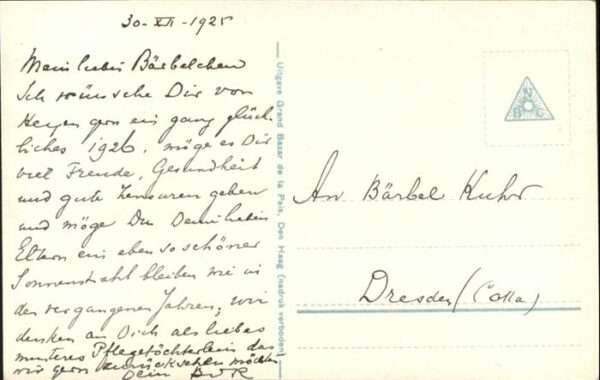 30-XII-1925
Mein liebes Bärbelchen
Ich wünsche Dir von
Herzen gern ein ganz glück-
liches 1926, möge es Dir
viel Freude, Gesundheit
und gute Zensuren geben
und möge Du Deinen lieben
Eltern ein eben so schöner
Sonnenstrahl bleiben wie in
den vergangenen Jahren, wir
denken an Dich als liebes
munteres Pflegetöchterlein das
wir gern zurückhaben möchten
Dein
Uitgave Grand Bazar de la Paix, Den Haag (nadruk verboden)
An Bärbel Kuhr
Dresden (Cotta)